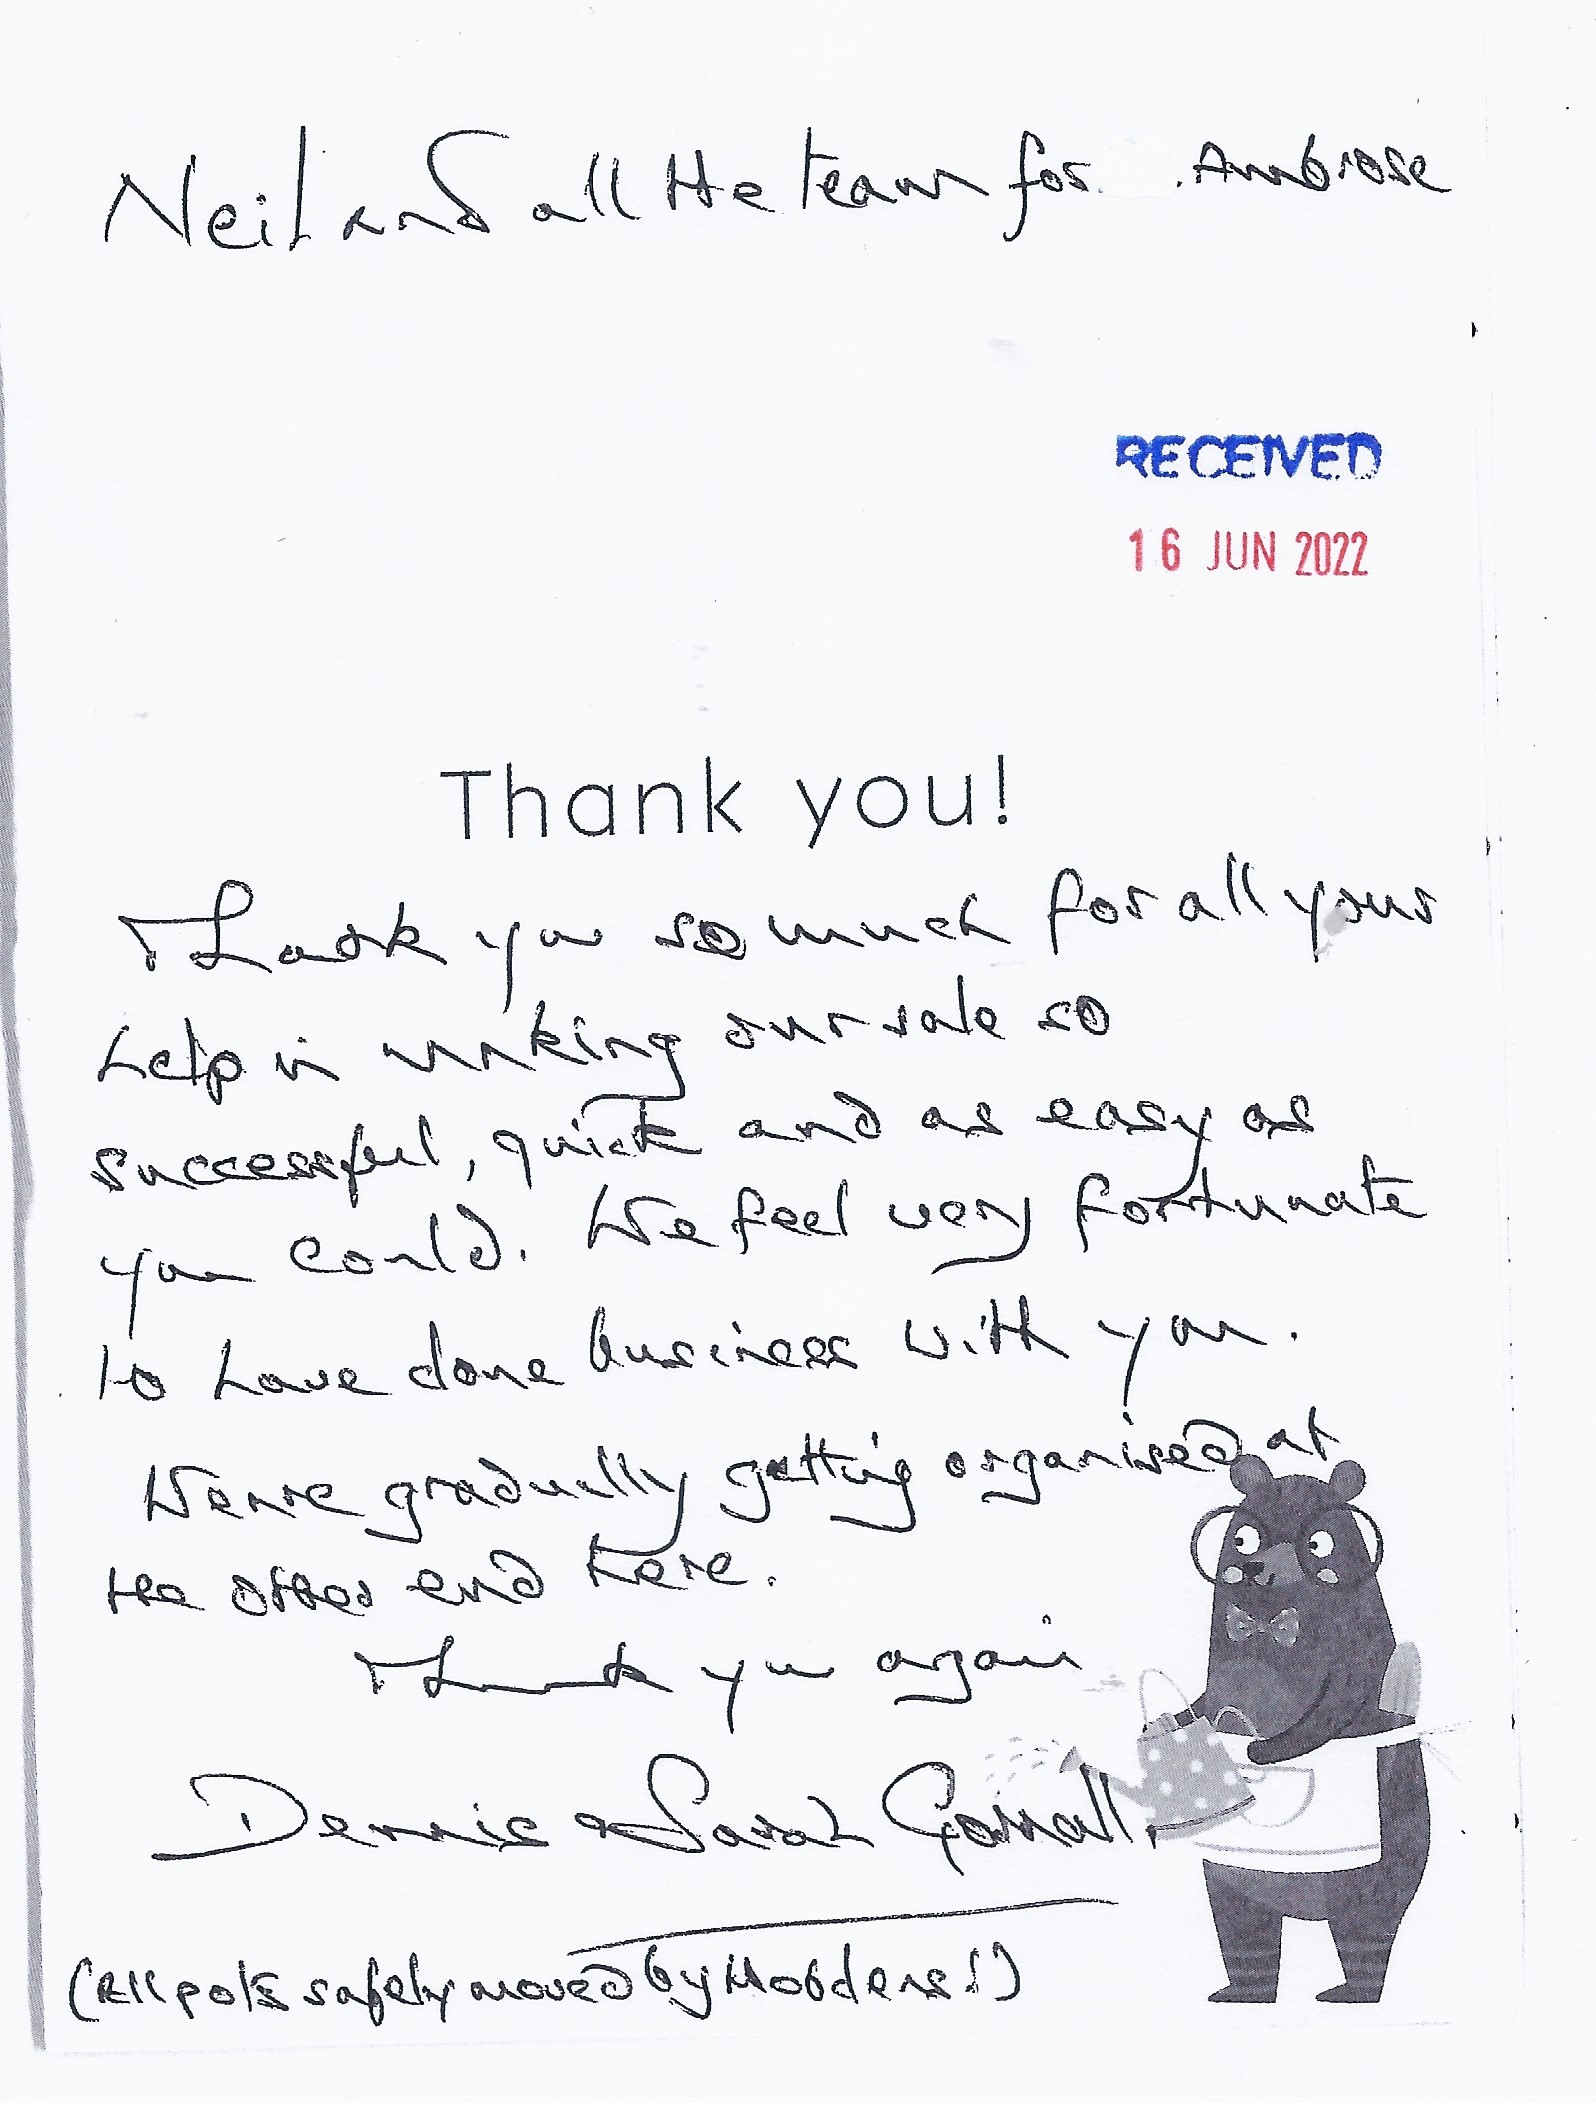 Neil and all the team for Ambrose
RECEIVED
16 JUN 2022
Thank you!
Thank you so much for all your
help in making our sale so
successful, quick and as easy as
you could. We feel very fortunate
to have done business with you.
We're gradually getting organised at
the other end here.
Thank you again
Dennis & Sarah
(All pots safely moved by Hobdens!)